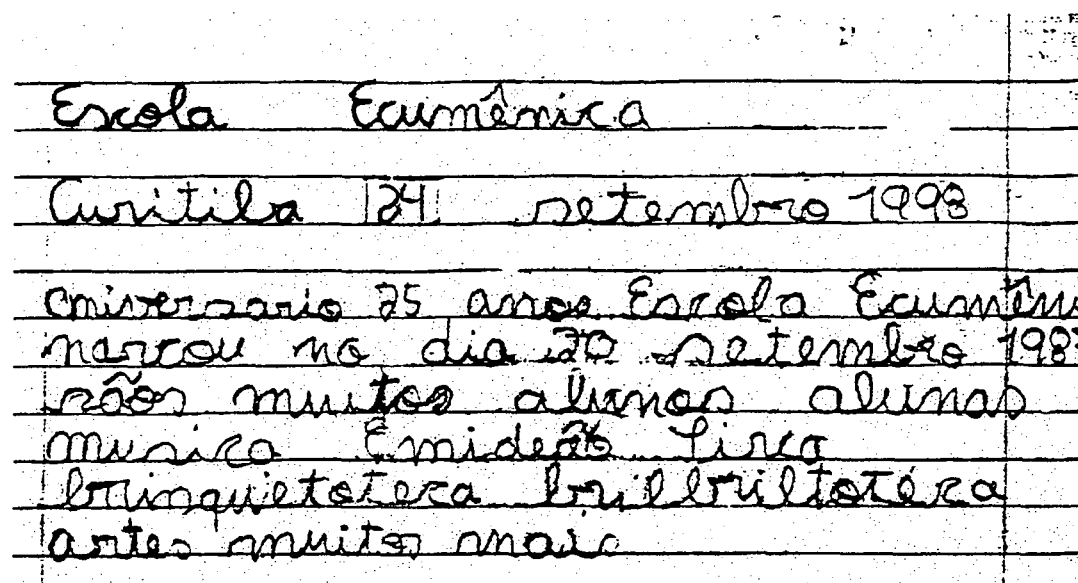 Escola Ecumênica
Curitiba 24 setembro 1998
eniversario 25 anos Escola Ecumêni
narcou no dia 20 setembro 198
sãos muitos alunos alunas
musica Circo
brinquetoteca brilbriltotéca
artes muitos mais